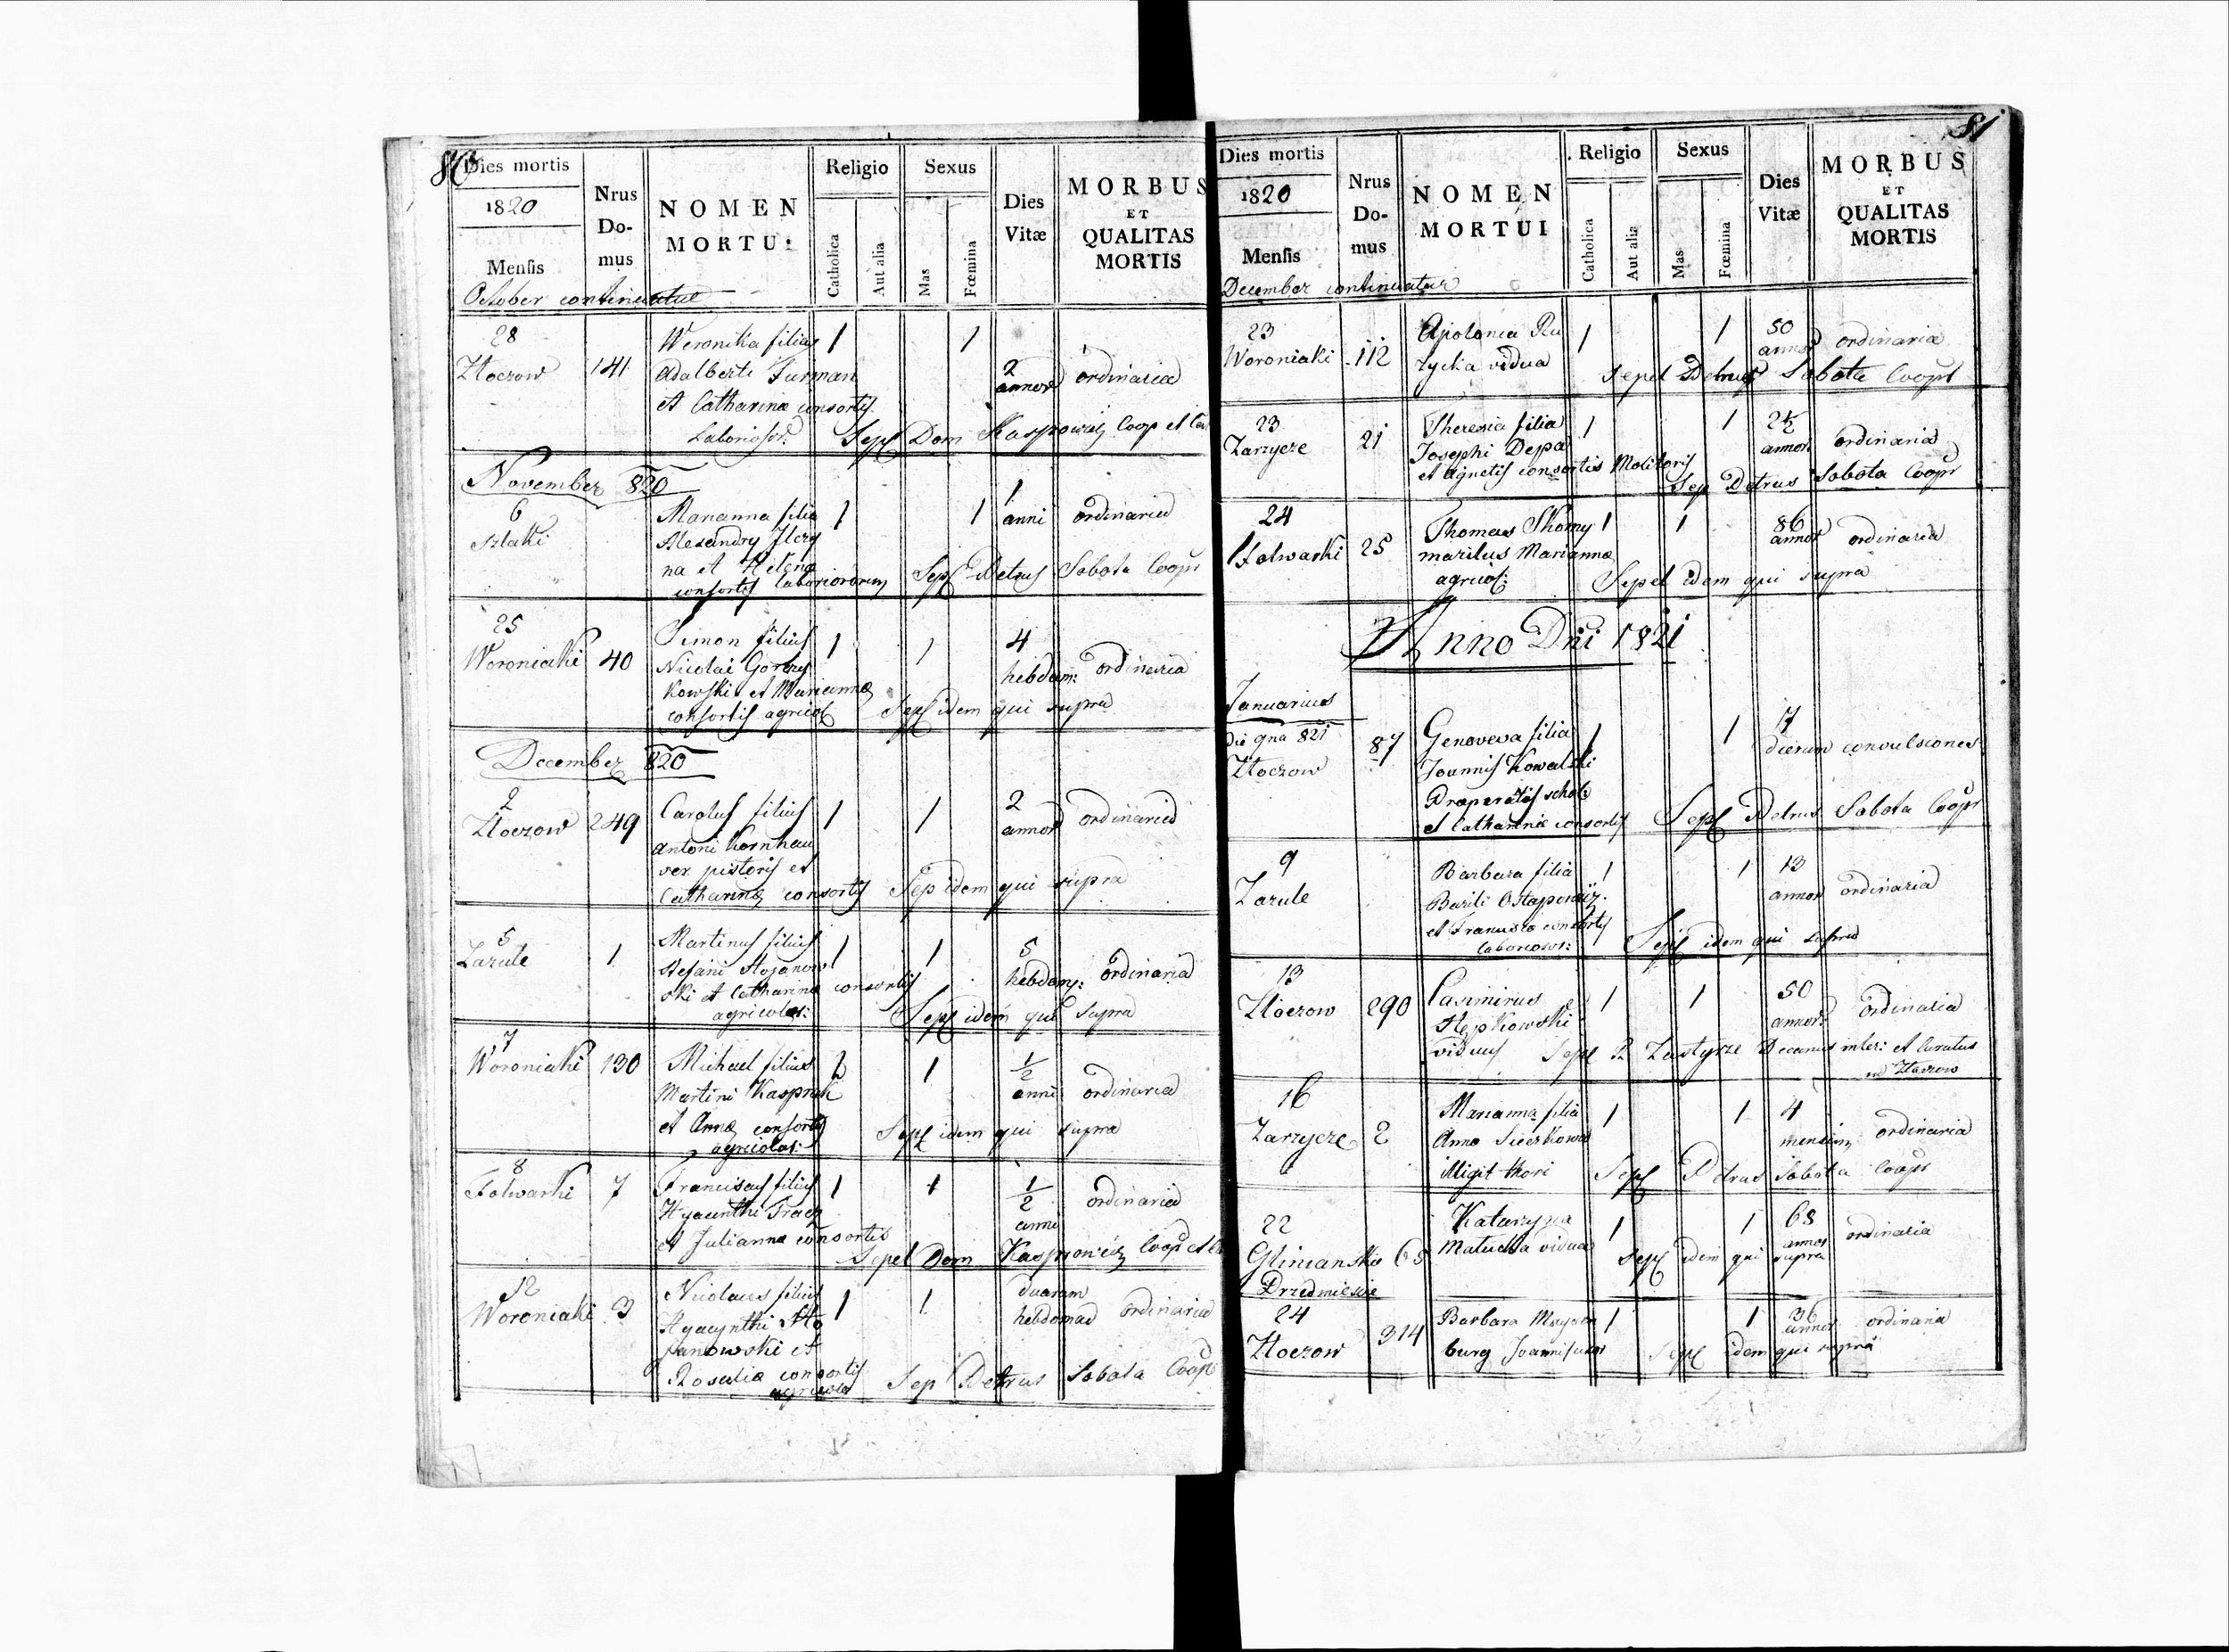 80
Dies mortis
1820
Mensis
Nrus
Do-
mus
NOMEN
MORTUI
Religio
Catholica
Aut alia
Sexus
Mas
Fœmina
Dies
Vitæ
MORBUS
ET
QUALITAS
MORTIS
October continuatur
28
Złoczow 141
Weronika filia 1 1
Adalberti Furman 2 annor ordinaria
et Catharina consortis
Laborios: Sepel Dom Kasprowicz Coop et
November 820
6
Szlaki
Marianna filia 1 1 1 anni ordinaria
Alexandry
na et Helena
consortis laboriosorum Sepel Petrus Sobota Coopr
25
Woroniaki 40
Simon filius 1 1 4
Nicolai Gorzy hebdom: ordinaria
kowski et Marianna
consortis agricol Sepel idem qui supra
December 820
2
Złoczow 249
Carolus filius 1 1 2 annor ordinaria
Antoni Kornhau
ver pistoris et
Catharina consortis Sep idem qui supra
5
Zazule 1
Martinus filius 1 1 5
Stefani Stojanow hebdom: ordinaria
ski et Catharina consortis
agricolar: Sepel idem qui supra
7
Woroniaki 130
Michael filius 1 1/2
Martini Kasprak anni ordinaria
et Anna consortis
agricolar: Sepel idem qui supra
8
Folwarki 7
Franciscus filius 1 1 1/2 ordinaria
Hyacinthi Tracz anni
et Julianna consortis
Sepel Dom Kasprowicz Coop et
12
Woroniaki 3
Nicolaus filius 1 1 duarum
Hyacynthi Sto hebdomad ordinaria
janowski et
Rosalia consortis
agricola Sep Petrus Sobota Coop
81
Dies mortis
1820
Mensis
Nrus
Do-
mus
NOMEN
MORTUI
Religio
Catholica
Aut alia
Sexus
Mas
Fœmina
Dies
Vitæ
MORBUS
ET
QUALITAS
MORTIS
December continuatur
23
Woroniaki 112
Apolonia Ru 1 1 50 annor ordinaria
zycka vidua Sepel Petrus Sobota Coopr
23
Zarzycze 21
Theresia filia 1 1 annor ordinaria
Josephi Depa
et Agnetis consortis Molitoris
Sep Petrus Sobota Coopr
24
Folwarki 25
Thomas Skomy 1 1 86 annor ordinaria
maritus Marianna
agricol: Sepel idem qui supra
Anno Dni 1821
Januarius
die qna 821 87
Złoczow
Genoveva filia 1 1 17
Joannis Kowalski dierum convulsiones
Præperatis schol
et Catharina consortis Sepel Petrus Sobota Coopr
9
Zazule
Barbara filia 1 1 13
Basili Ostapowicz annor ordinaria
et Franciska consortis
laborios: Sepel idem qui supra
13
Złoczow 290
Casimirus 1 1 50
Stępkowski annor ordinaria
viduus Sepel R Zastyrze Decanus inter: et Curatus
in Złoczow
16
Zarzycze 2
Marianna filia 1 1 4
Anna Sieczkowa mensium ordinaria
illigit thori Sepel Petrus Sobota Coopr
22
Katarzyna 1 1 68
Matucha vidua annor ordinaria
Sepel idem qui supra
Glinianskie
Przedmiescie
24
Złoczow 314
Barbara 1 1 36 annor ordinaria
burg Joannis uxor Sepel idem qui supra